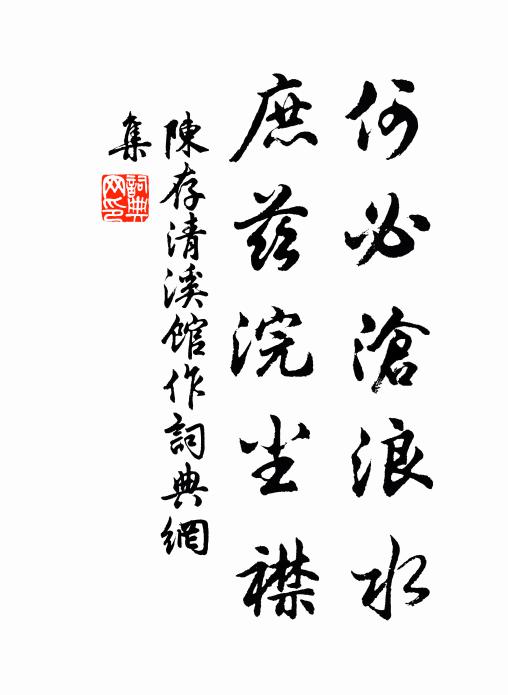 何必滄浪水
庶茲浣尘襟
陳存清溪館作詞典網
集
詞典
网印